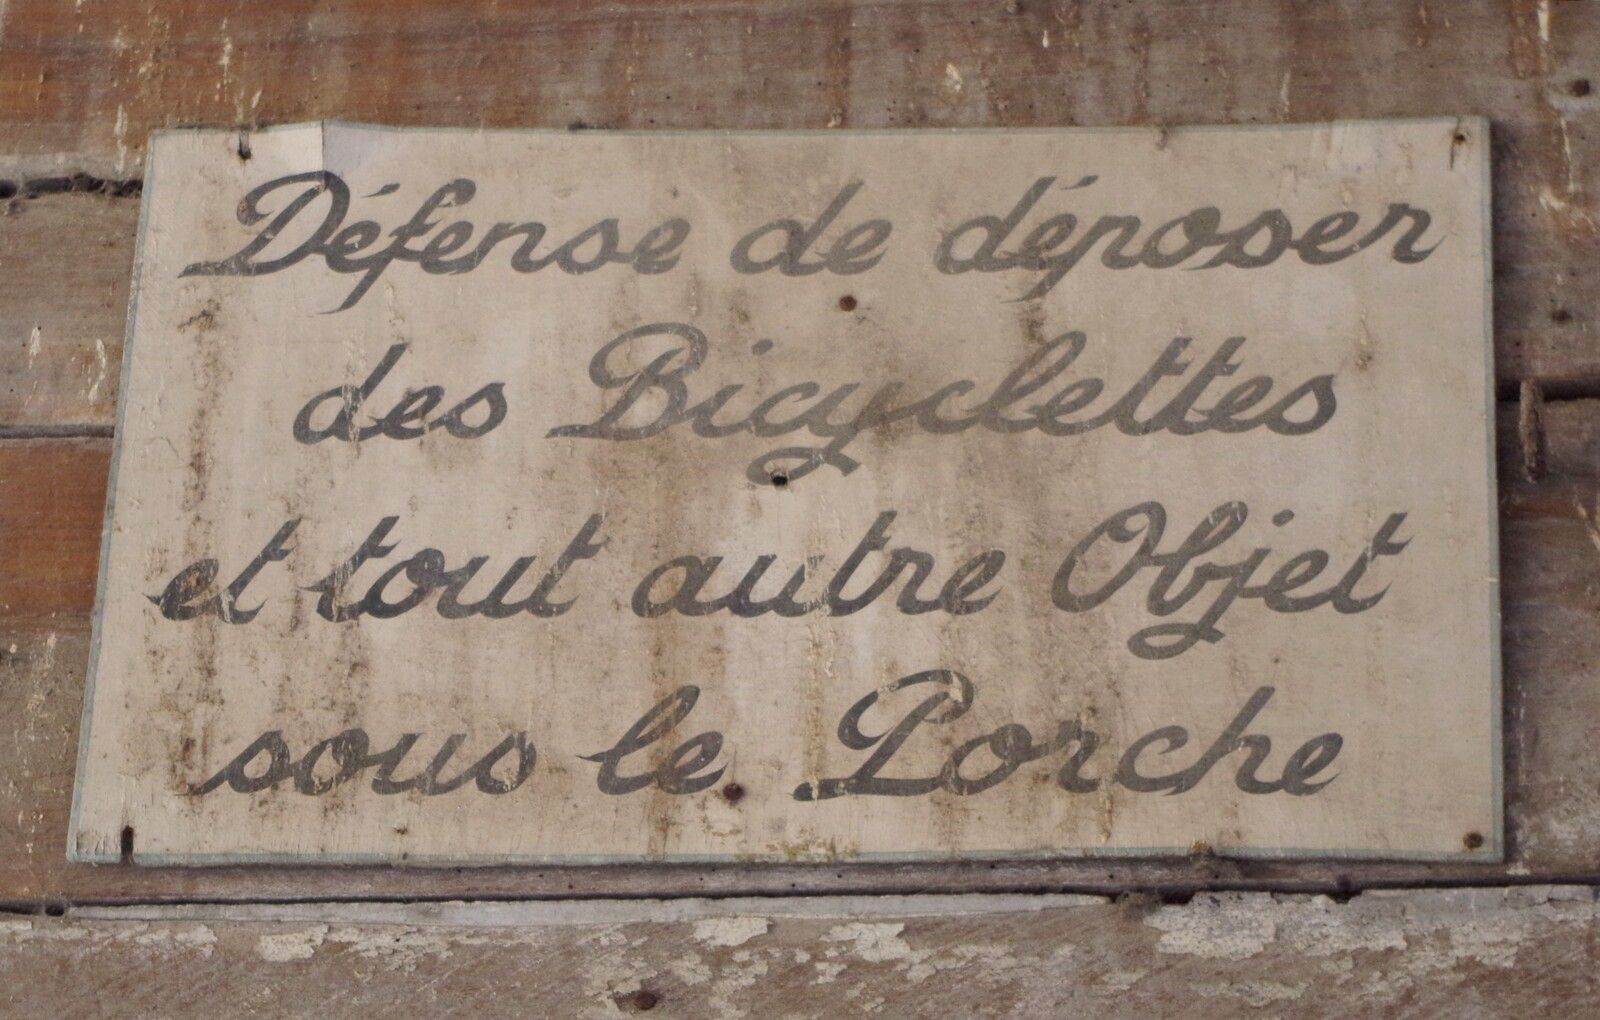 Défense de déposer
des Bicyclettes
et tout autre Objet
sous le Porche